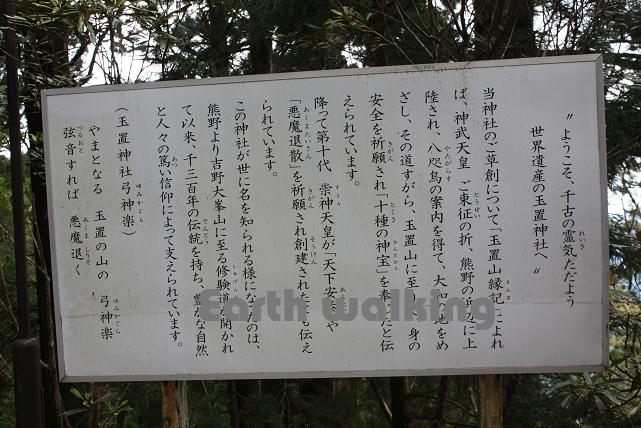 〝ようこそ、千古の霊気ただよう
世界遺産の玉置神社へ〟
当神社のご草創について「玉置山縁記」によれ
ば、神武天皇 ご東征の折、熊野の 上
陸され、八咫烏の案内を得て、大和の地をめ
ざし、その道すがら、玉置山に至り 身の
安全を祈願され「十種の神宝」を奉じたと伝
えられています。
降つて第十代 崇神天皇が「天下安 や
「悪魔退散」を祈願され創建されたも伝え
られています。
この神社が世に名を知られる様になったのは、
熊野より吉野大峯山に至る修験道が開かれ
て以来、千三百年の伝統を持ち、豊かな自然
と人々の篤い信仰によって支えられています。
(玉置神社弓神楽)
やまとなる 玉置の山の 弓神楽
弦音すれば 悪魔退く
Earth walking